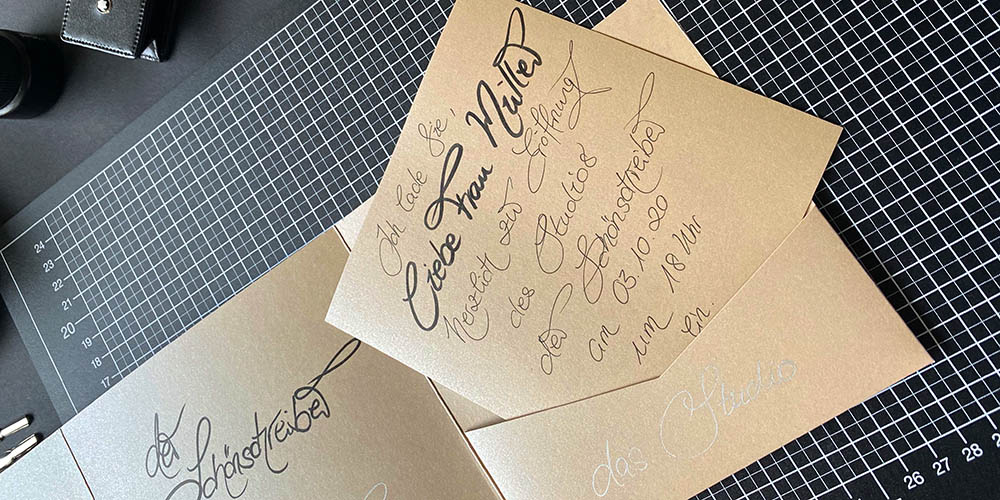 Ich lade Sie,
liebe Frau Müller
herzlich zur Eröffnung
des Studios
der Schönschreiber
am 03.10.20
um 18 Uhr
ein.
der
Schönschreiber
das Studio
24
23
22
21
20
18
17
26 27 28